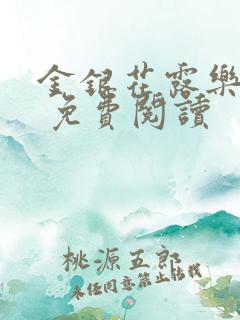 金銀花露樂
免費閱讀
桃源五郎
未经同意禁止转载